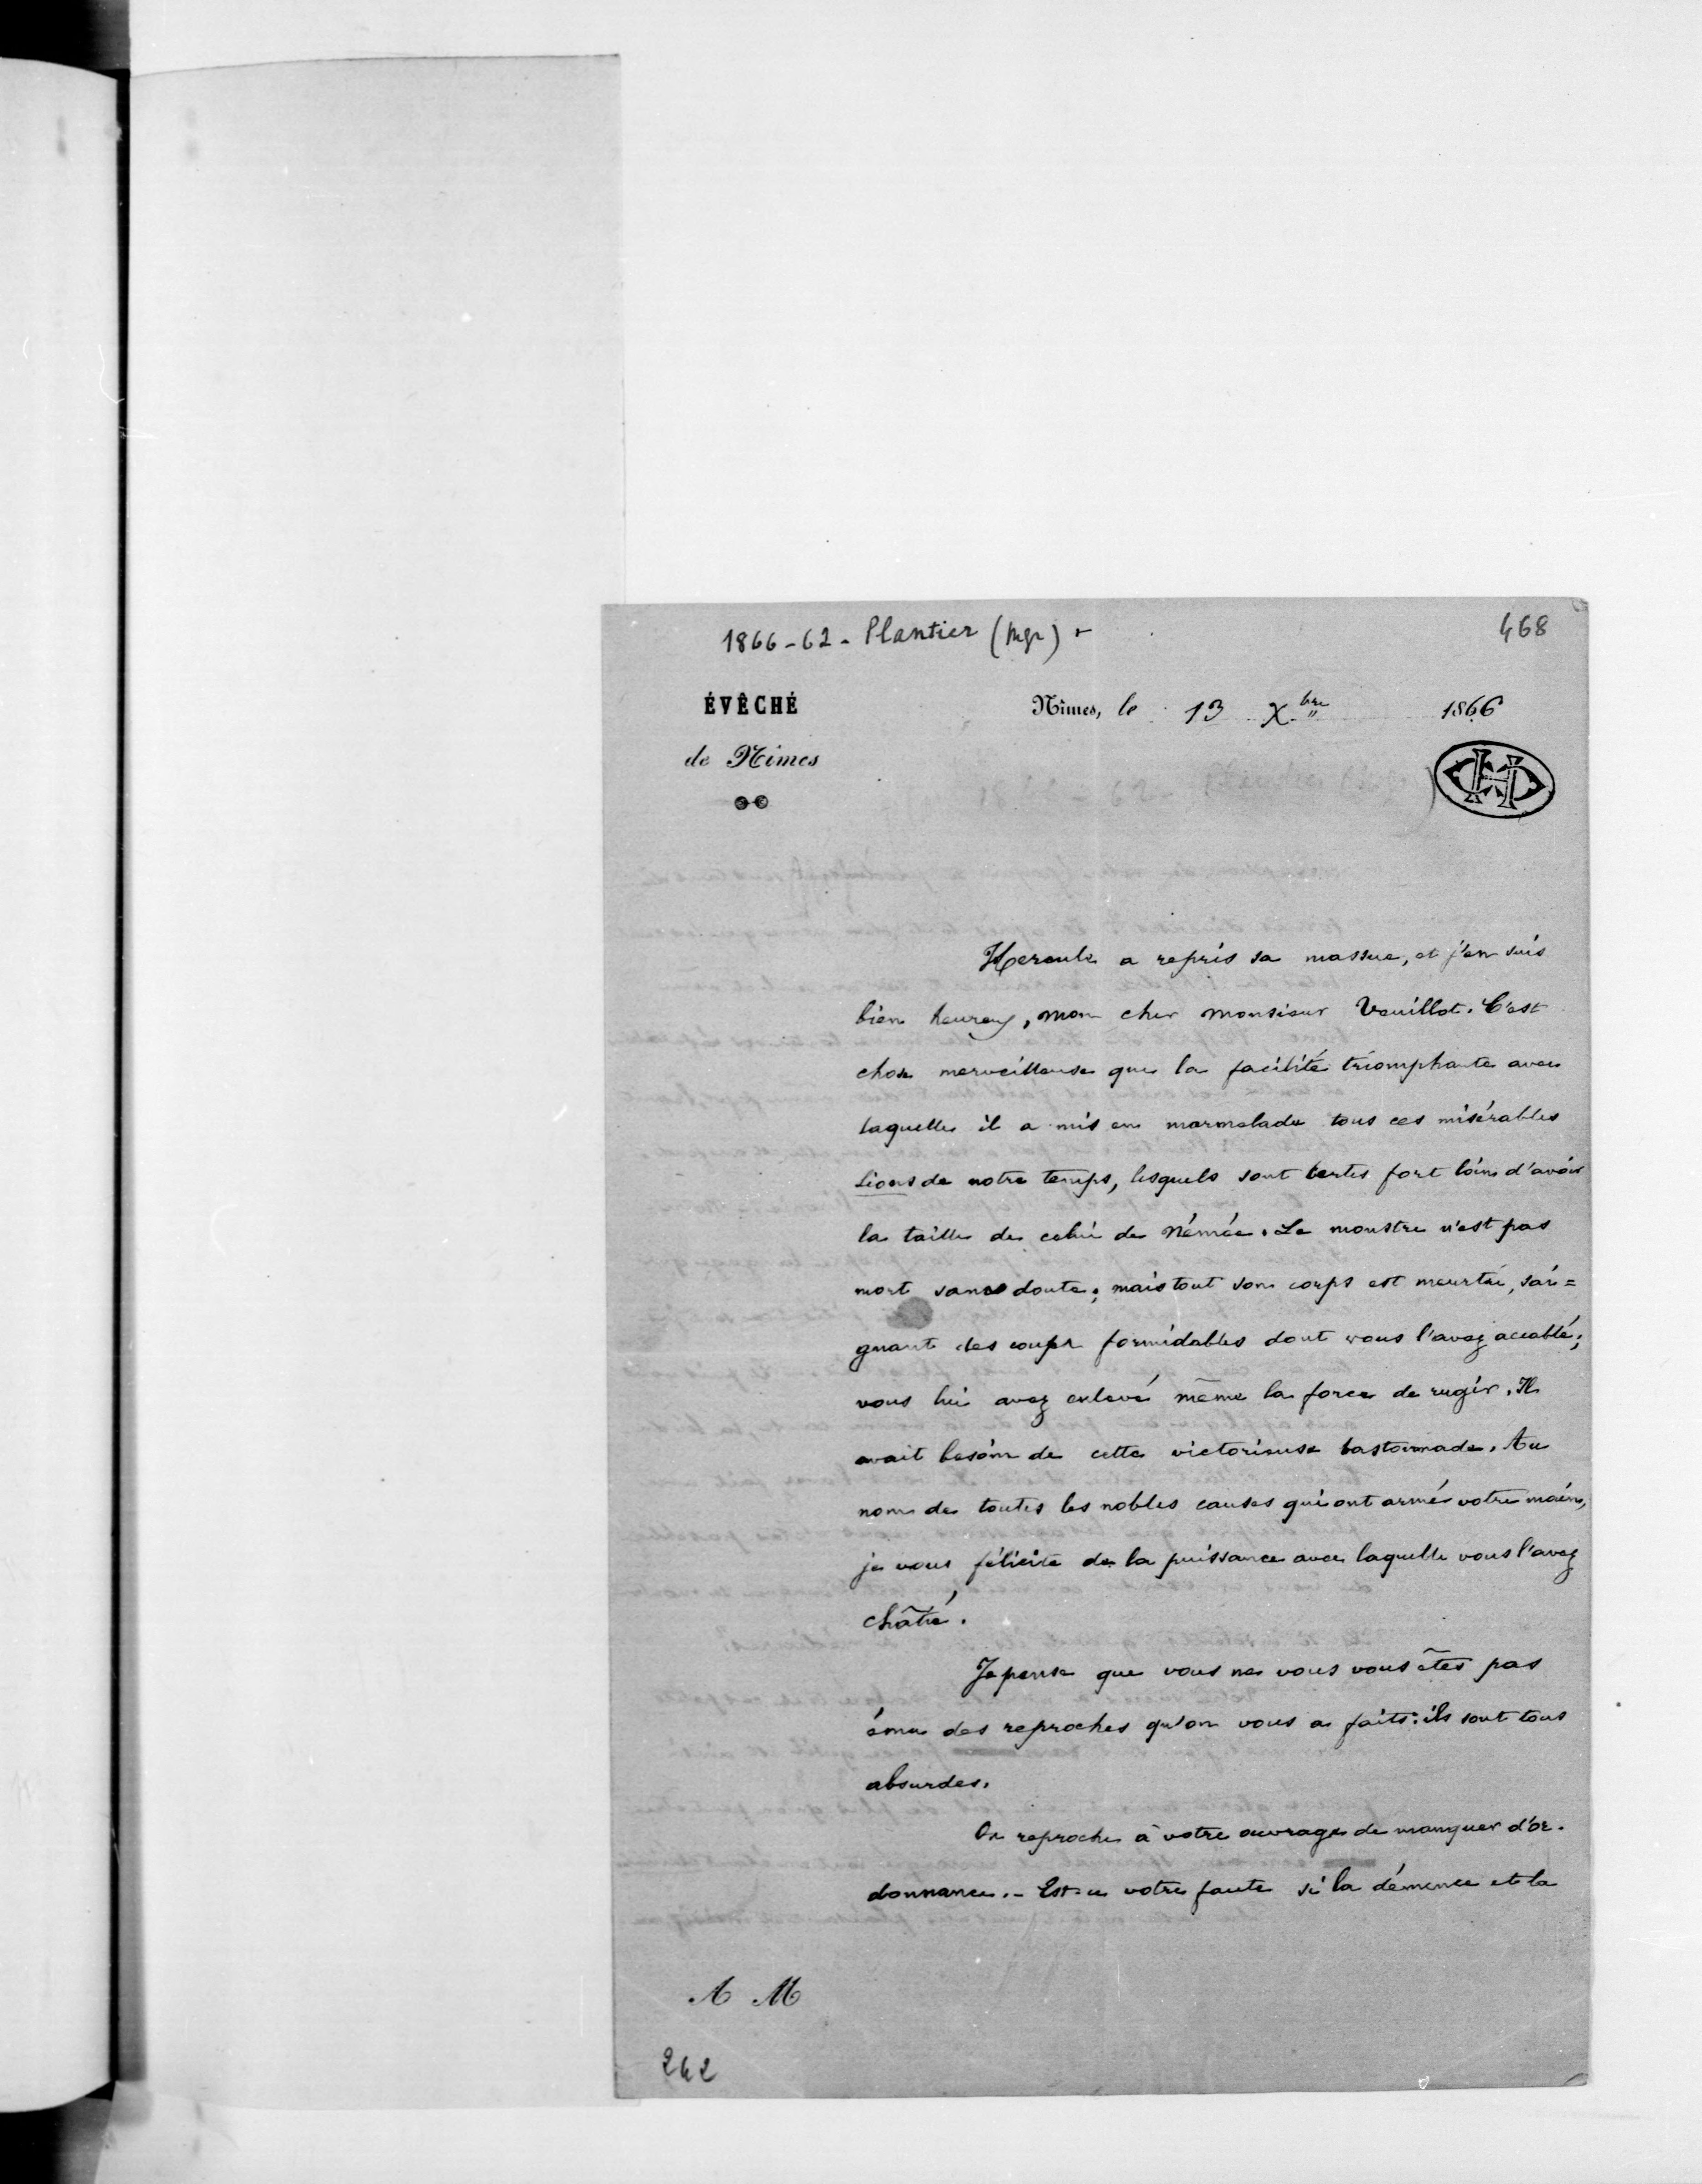 1866-62- Plantier (Mgr) -
468
ÉVÊCHÉ
de Nîmes
Nîmes, le 13 Xbre 1866
Hercule a repris sa massue, et j'en suis
bien heureux, mon cher Monsieur Veuillot. C'est
chose merveilleuse que la facilité triomphante avec
laquelle il a mis en marmelade tous ces misérables
Lions de notre temps, lesquels sont certes fort loin d'avoir
la taille de celui de Némée. Le monstre n'est pas
mort sans doute; mais tout son corps est meurtri, sai=
gnant des coups formidables dont vous l'avez accablé;
vous lui avez enlevé même la force de rugir. Il
avait besoin de cette victorieuse bastonnade. Au
nom de toutes les nobles causes qui ont armé votre main,
je vous félicite de la puissance avec laquelle vous l'avez
châtié.
Je pense que vous ne vous vous êtes pas
ému des reproches qu'on vous a faits: ils sont tous
absurdes.
On reproche à votre ouvrage de manquer d'or-
donnance. - Est-ce votre faute si la démence et la
A M
242